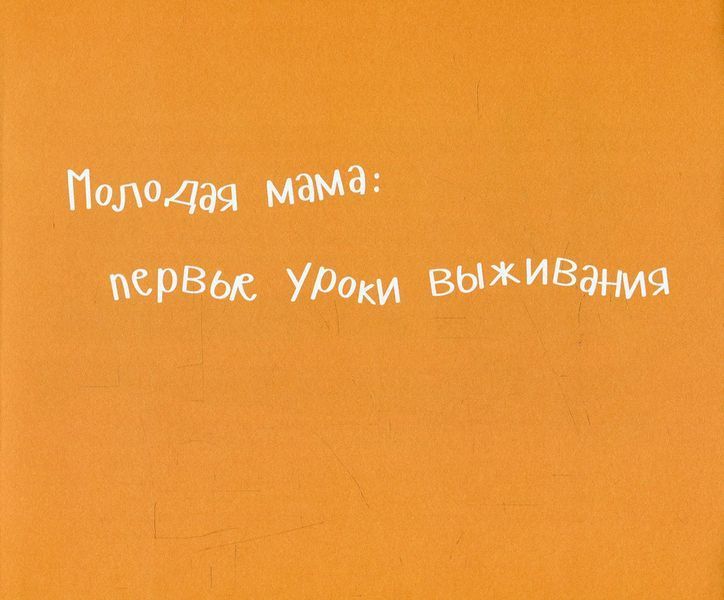 Молодая мама:
первые уроки выживания